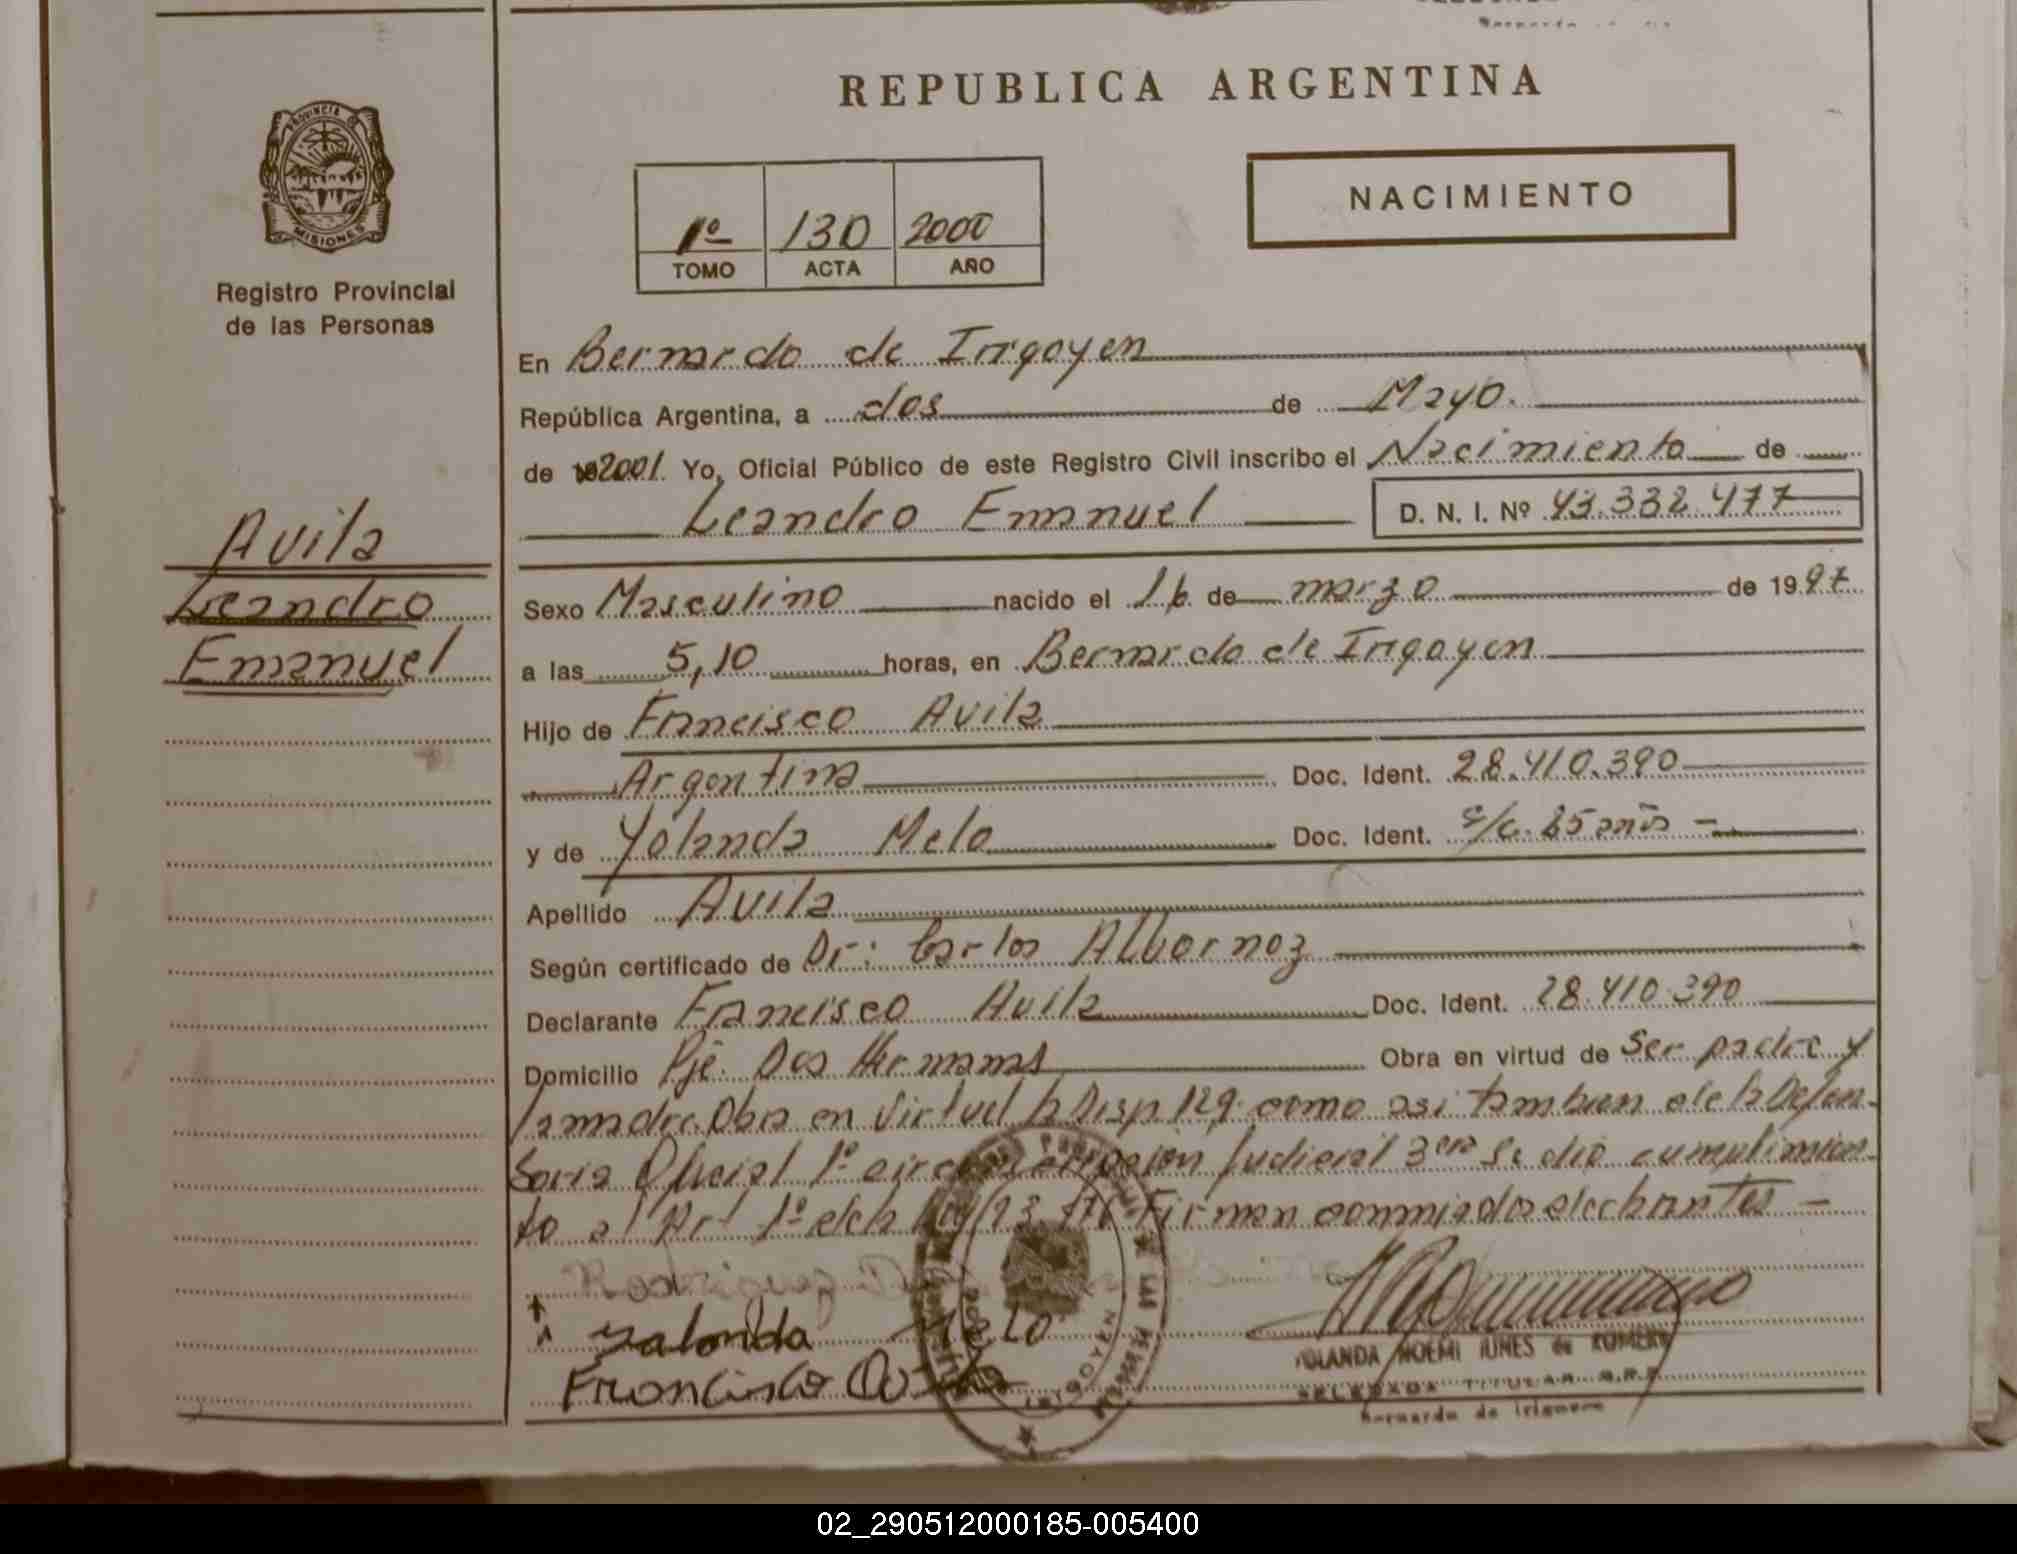 REPUBLICA ARGENTINA
PROVINCIA DE
MISIONES
Registro Provincial
de las Personas
1º 130 2000
TOMO ACTA AÑO
NACIMIENTO
Avila
Leandro
Emanuel
En Bernardo de Irigoyen
República Argentina, a dos de Mayo.
de 2001. Yo, Oficial Público de este Registro Civil inscribo el Nacimiento de
Leandro Emanuel D. N. I. Nº 43.332.477
Sexo Masculino nacido el 16 de marzo de 1997.
a las 5,10 horas, en Bernardo de Irigoyen
Hijo de Francisco Avila
Argentina Doc. Ident. 28.410.390
y de Yolanda Melo Doc. Ident. años
Apellido Avila
Según certificado de Dr: Carlos Albornoz
Declarante Francisco Avila Doc. Ident. 28.410.390
Domicilio Pje. Dos Hermanas Obra en virtud de Ser padre y
la madre. Obra en virtud la Disp. 129. como asi tambien de la Defen-
soria Oficial 1º circunscripcion Judicial 3era Se dio cumplimien-
to al Art 1º de la Firman conmigo los declarantes
Yalonda Melo
Francisco Avila
YOLANDA NOEMI de ROMERO
TITULAR
Bernardo de Irigoyen
02_290512000185-005400